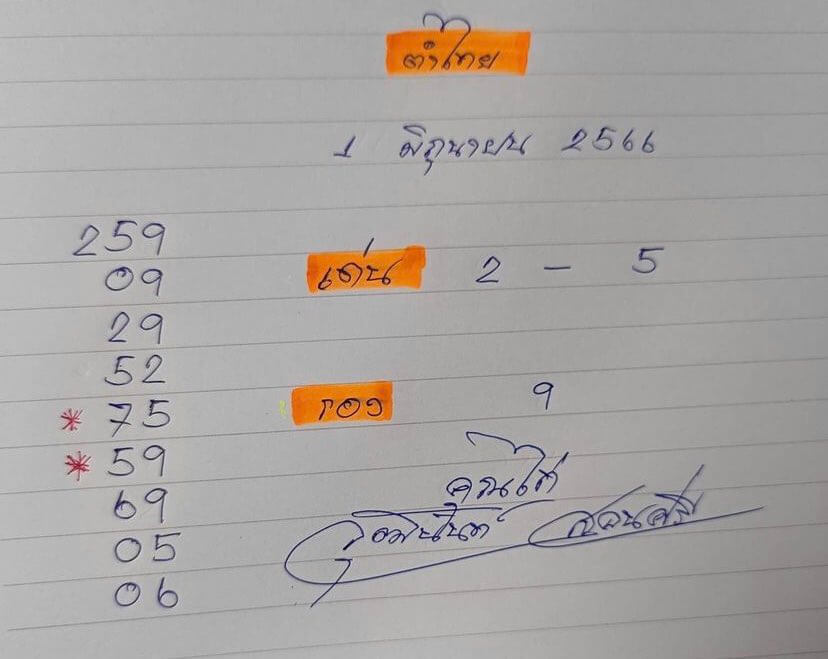 กำไทย
1 มิถุนายน 2566
259
09
เด่น 2 - 5
29
52
* 75
รอง 9
* 59
69
05
06